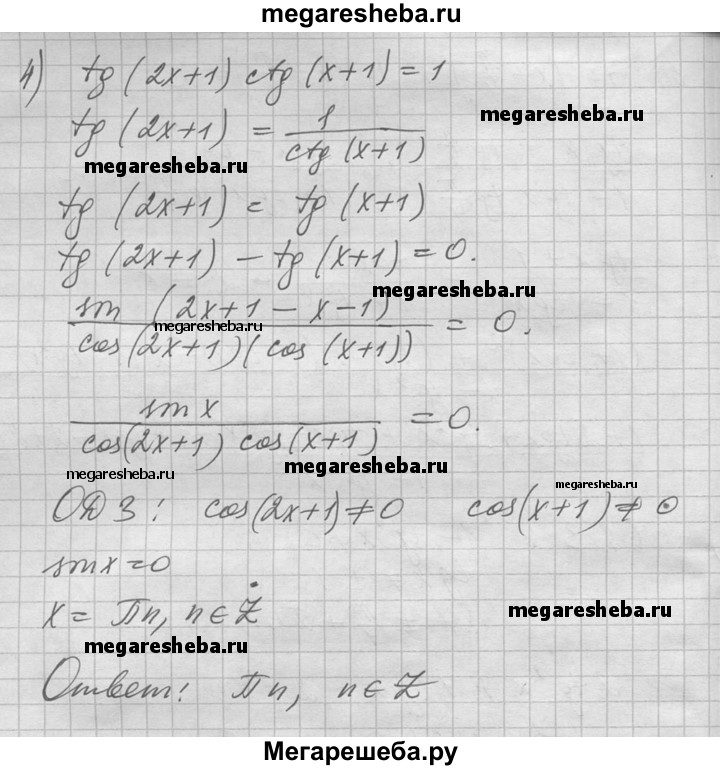 megaresheba.ru
4) tg (2x+1) ctg (x+1) = 1
tg (2x+1) = 1 / ctg (x+1)
megaresheba.ru
megaresheba.ru
tg (2x+1) = tg (x+1)
tg (2x+1) - tg (x+1) = 0.
megaresheba.ru
sin (2x+1 - x - 1) / cos(2x+1)(cos (x+1)) = 0.
megaresheba.ru
sin x / cos(2x+1) cos(x+1) = 0.
megaresheba.ru
megaresheba.ru
megaresheba.ru
ОДЗ: cos(2x+1) ≠ 0 cos(x+1) ≠ 0
sin x = 0
x = Пn, n ∈ Z
megaresheba.ru
megaresheba.ru
Ответ: Пn, n ∈ Z
Мегарешеба.ру